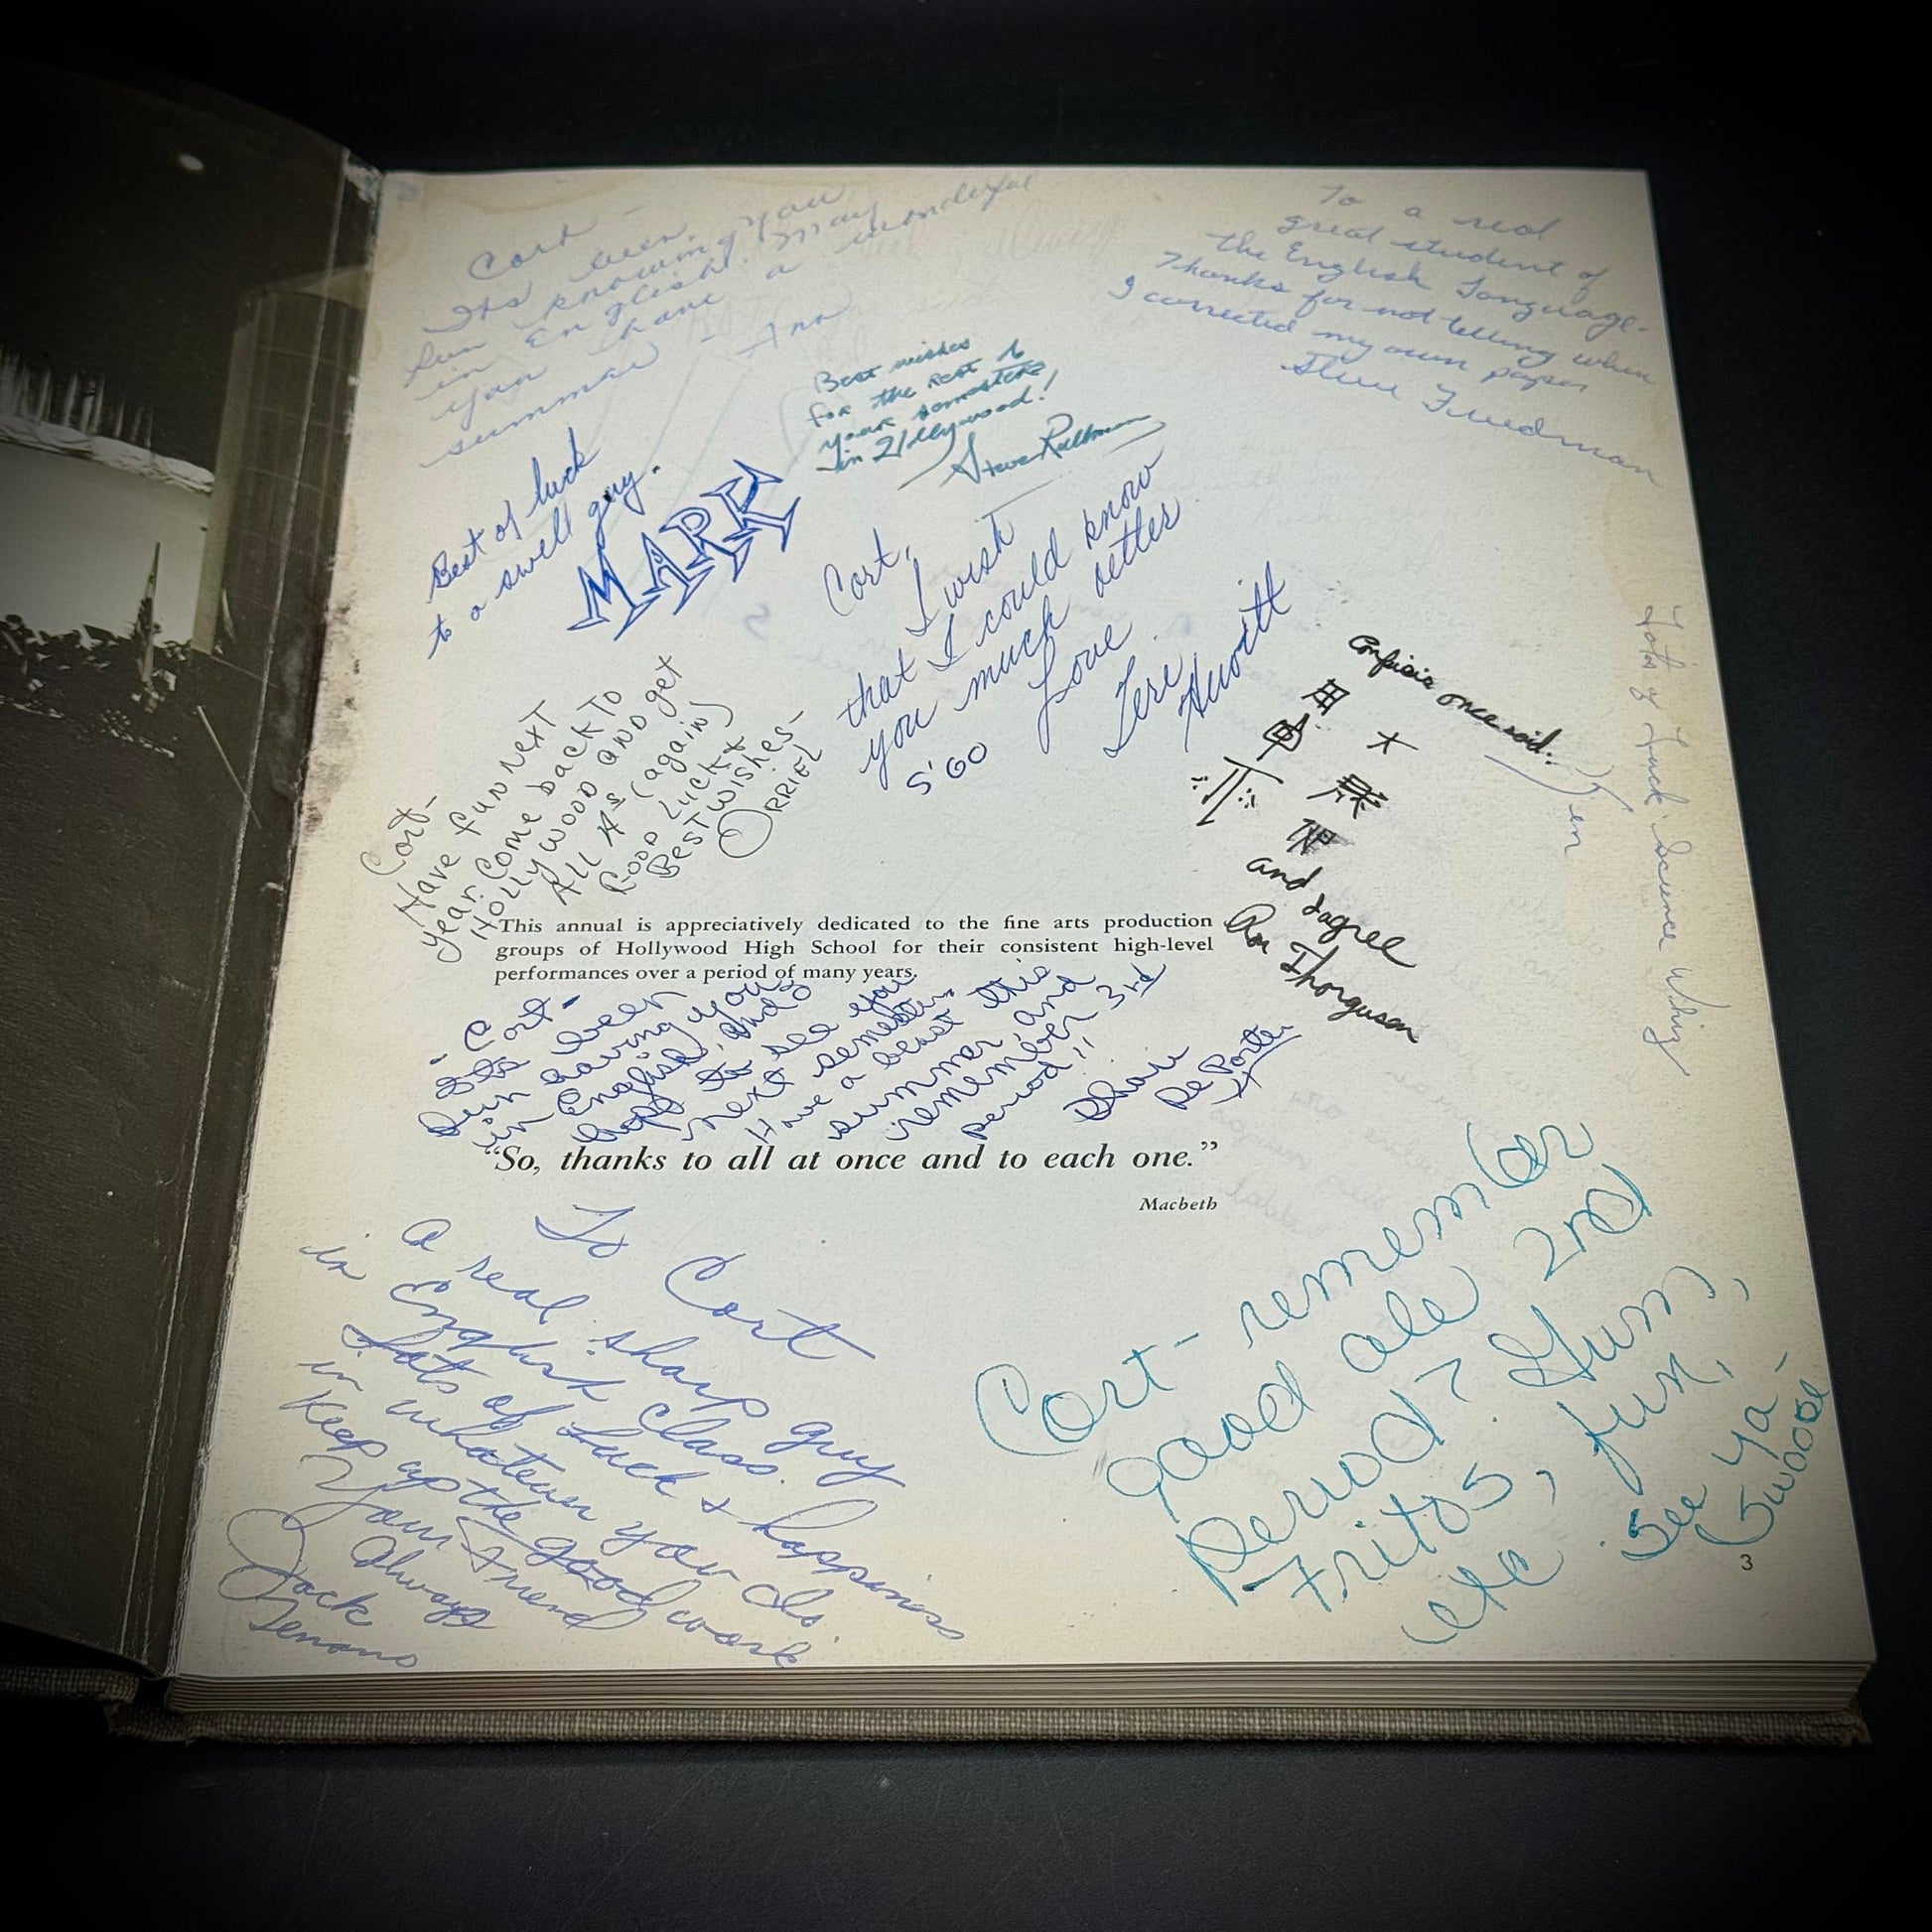 Cort -
Its been
fun knowing you
in English. May
you have a wonderful
summer - Ann
To a real
great student of
the English Language.
Thanks for not telling when
I corrected my own paper
Steve Friedman
Best wishes
for the rest of
your semesters
in Hollywood!
Steve
Best of luck
to a swell guy.
MARK
Cort,
I wish
that I could know
you much better
Love
Teri
S'60
Confusis once said:
大
and I agree
Thorguson
Lots of Luck Science Whiz
Cort-
Have fun next
year. Come back to
Hollywood and get
All A's (again)
Good Luck &
Best Wishes-
ORRIEL
This annual is appreciatively dedicated to the fine arts production
groups of Hollywood High School for their consistent high-level
performances over a period of many years.
Cort-
Its been
fun having you
in English, and
hope to see you
next semester.
Have a beast this
summer and
remember 3rd
period!!
De Porter
“So, thanks to all at once and to each one.”
Macbeth
To Cort
A real sharp guy
in English class.
Lots of Luck & happiness
in whatever you do.
Keep up the good work
Your Friend
Always
Jack
Cort- remember
good ole 2nd
period? Gum,
Fritos, fun,
etc. See ya-
3